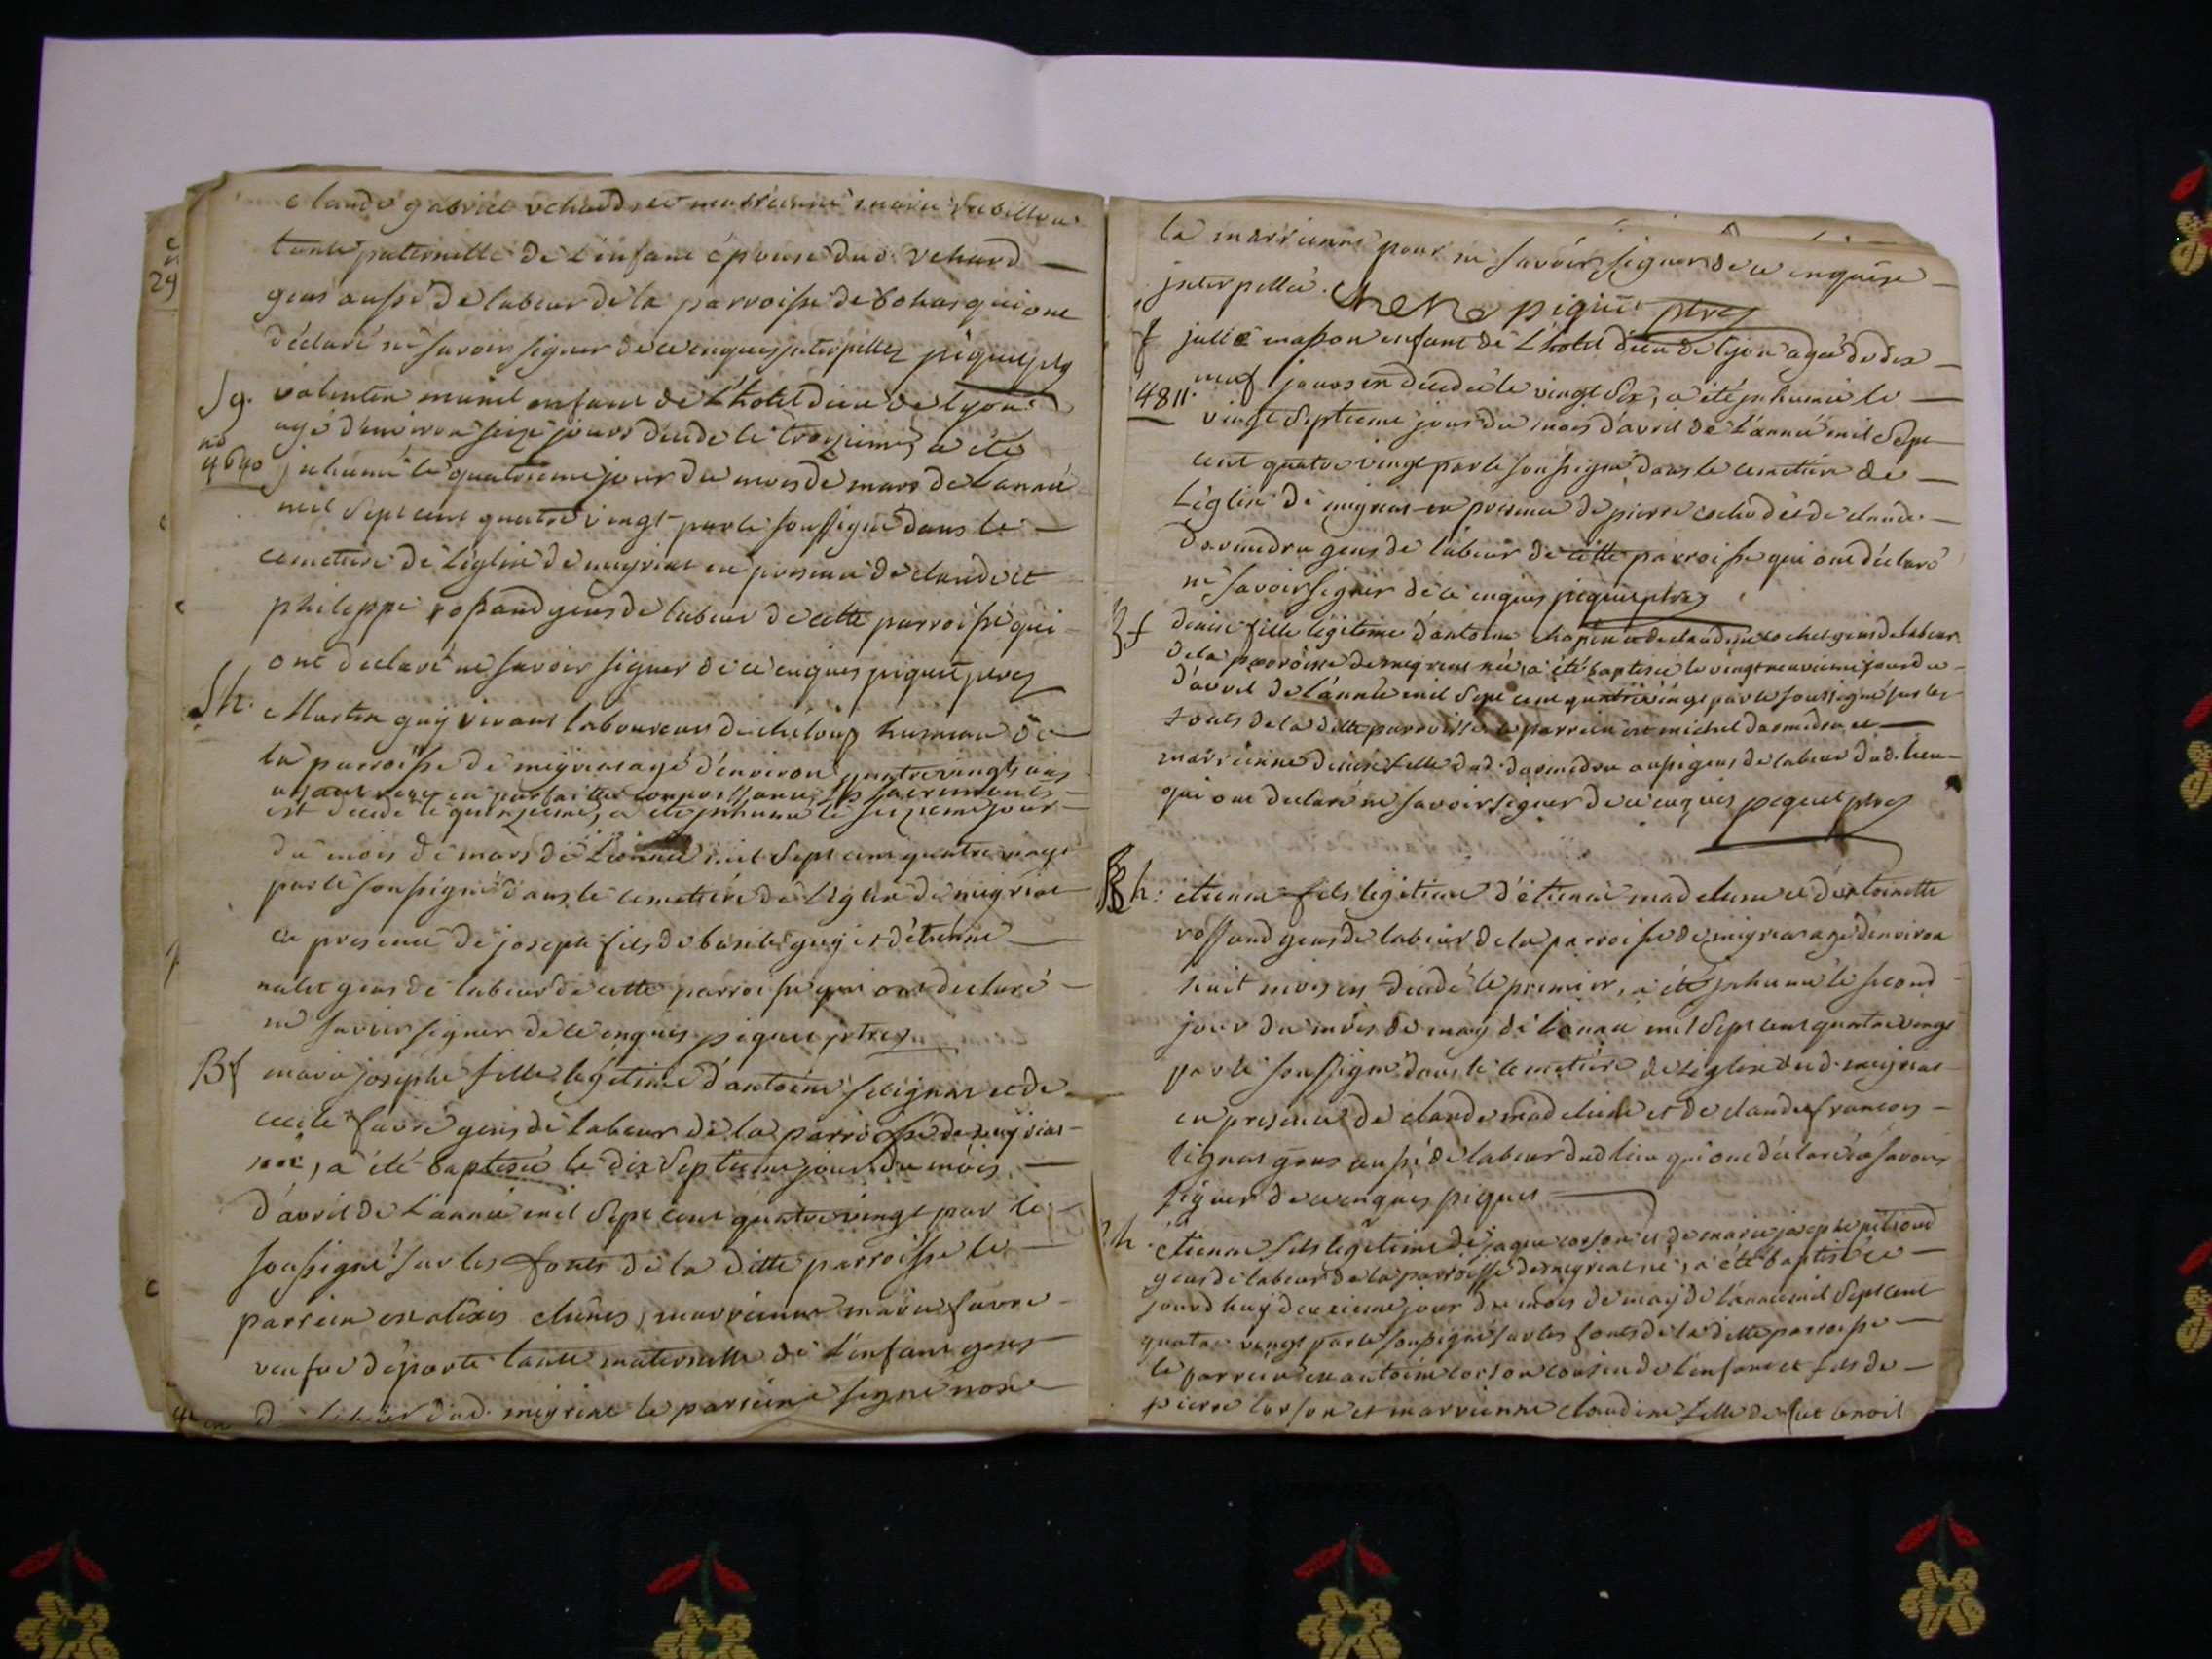 claude gabriel vehard, et marrienne marie
tante paternelle de l'enfant épouse dud. vehard
gens aussi de labeur de la parroisse de bohas qui ont
déclaré ne savoir signer de ce enquis interpellez piquet ptre
Sg. valentin enfant de L'hotel dieu de lyon
agé d'environ seize jours decede le troizieme, a été
no
4640 inhumé le quatrieme jour du mois de mars de L'année
mil sept cent quatre vingt par le soussigné dans le
cemetiere de L'église de meyriat en presence de claude et
philippe rossand gens de labeur de cette parroisse qui
ont declaré ne savoir signer de ce enquis piquet ptre
Sh. Martin guy vivant laboureur de
la parroisse de meyriat agé d'environ quatre vingts ans
ayant reçu en parfaitte connoissance les sacrements
est decedé le quinzieme, a été inhumé le seizieme jour
du mois de mars de L'année mil sept cent quatre vingt
par le soussigné dans le cemettiere de L'église de meyriat
en presence de joseph fils de basile guy et d'étienne
gens de labeur de cette parroisse qui ont declaré
ne savoir signer de ce enquis piquet ptre
Bf marie josephe fille légitime d'antoine et de
cecile favre gens de labeur de la parroisse de meyriat
née, a été baptisée le dix septieme jour du mois
d'avril de L'année mil sept cent quatre vingt par le
soussigné sur les fonts de la ditte parroisse le
parrein est alexis marrienne marie favre
veufve tante maternelle de L'enfant gens
de labeur dud. meyriat le parrein signé non
29
la marrienne pour ne savoir signer de ce enquise
interpellée. piquet ptre
f julie masson enfant de L'hotel dieu de lyon agée de dix
4811. neuf jours en decedée le vingt six, a été inhumée le
vingt septieme jour du mois d'avril de L'année mil sept
cent quatre vingt par le soussigné dans le cemettiere de
L'église de meyriat en presence de pierre et de claude
gens de labeur de cette parroisse qui ont déclaré
ne savoir signer de ce enquis piquet ptre
Bf denise fille légitime d'antoine chapeau et de claudine rochet gens de labeur
de la parroisse de meyriat née, a été baptisée le vingt neuvieme jour du
d'avril de L'année mil sept cent quatre vingt par le soussigné sur les
fonts de la ditte parroisse le parrein est michel et
marrienne denise fille dud. aussi gens de labeur dud. lieu
qui ont declaré ne savoir signer de ce enquis piquet ptre
Sh: etienne fils légitime d'étienne et d'antoinette
rossand gens de labeur de la parroisse de meyriat agé d'environ
huit mois en decedé le premier, a été inhumé le second
jour du mois de may de L'année mil sept cent quatre vingt
par le soussigné dans le cemetiere de L'église dud. meyriat
en presence de claude et de claude francois
gens aussi de labeur dud lieu qui ont déclaré ne savoir
signer de ce enquis piquet
Bh. étienne fils légitime de jaque corson et de marie josephe
gens de labeur de la parroisse de meyriat né, a été baptisé ce
jourd huy deuxieme jour du mois de may de L'année mil sept cent
quatre vingt par le soussigné sur les fonts de la ditte parroisse
le parrein est antoine corson cousin de L'enfant et fils de
pierre corson et marrienne claudine fille de fut benoit